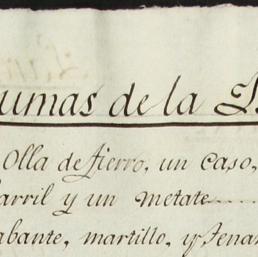 umas de la
Olla de fierro, un caso,
arril y un metate
abante, martillo, y tena